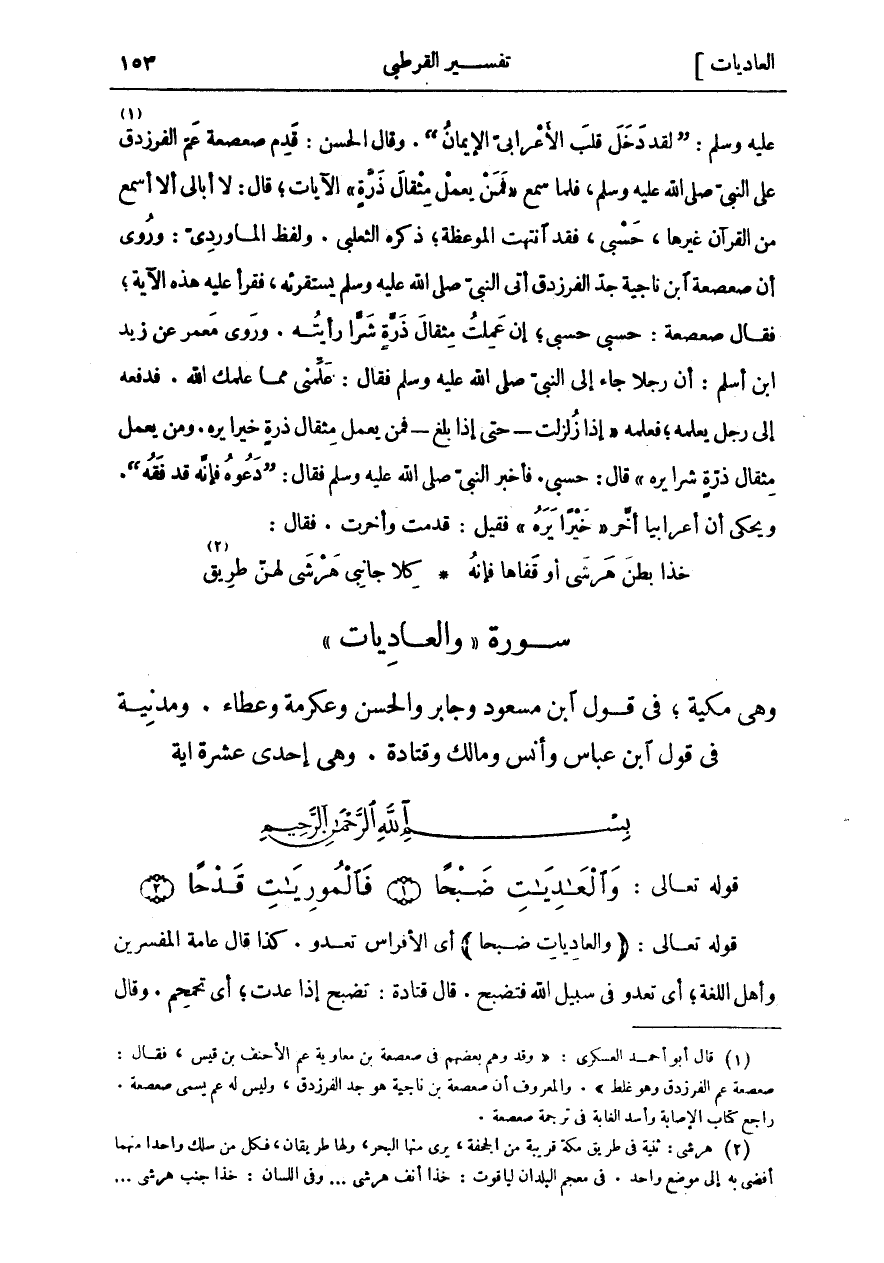 العاديات ] تفســـير القرطبى ١٥٣
عليه وسلم : ”لقد دَخَلَ قلبَ الأَعْرابىّ الإيمانُ“ . وقال الحسن : قَدِم صعصعة عَمّ الفرزدق (١)
على النبىّ صلى الله عليه وسلم، فلما سمع «فَمَنْ يعملْ مِثقالَ ذَرَّةٍ» الآيات؛ قال: لا أبالى ألا أسمع
من القرآن غيرها ، حَسْبِى ، فقد ٱنتهت الموعظة؛ ذكره الثعلبى . ولفظ المـاوردىّ : ورُوى
أن صعصعة ٱبن ناجية جدّ الفرزدق أتى النبىّ صلى الله عليه وسلم يستقرئه، فقرأ عليه هذه الآية؛
فقـال صعصعة : حسبى حسبى؛ إن عَمِلتُ مِثقالَ ذَرَّةٍ شَرًّا رأيتُـه . ورَوى مَعمر عن زيد
ابن أسلم : أن رجلا جاء إلى النبىّ صلى الله عليه وسلم فقال : عَلِّمْنى ممـا علمك الله . فدفعه
إلى رجل يعلمه؛ فعلمه « إذا زُلزلت — حتى إذا بلغ — فمن يعمل مِثقال ذرةٍ خيرا يره. ومن يعمل
مِثقال ذرّةٍ شرا يره » قال : حسبى. فأخبر النبىّ صلى الله عليه وسلم فقال: ”دَعُوهُ فإنَّه قد فَقُه“.
ويحكى أن أعرابيا أخَّر « خَيْرًا يَرَهُ » فقيل : قدمت وأخرت . فقال :
خذا بطنَ هَرشَى أو قَفاها فإنهُ * كِلا جانِبى هَرْشَى لهنّ طرِيق (٢)
ســـورة « والعـاديات »
وهى مكية ؛ فى قـول ٱبن مسعود وجابر والحسن وعكرمة وعطاء . ومدنِيـة
فى قول ٱبن عباس وأنس ومالك وقتادة . وهى إحدى عشرة اية
بِسْـــــــــمِ ٱللَّهِ ٱلرَّحْمَٰنِ ٱلرَّحِيـمِ
قوله تعـالى : وَٱلْعَـٰدِيَـٰتِ ضَبْحًا ۝١ فَٱلْمُورِيَـٰتِ قَـدْحًا ۝٢
قوله تعـالى : ﴿ والعاديات ضـبحا ﴾ أى الأفراس تعـدو . كذا قال عامة المفسرين
وأهل اللغة؛ أى تعدو فى سبيل الله فتضبح . قال قتادة : تضبح إذا عدت؛ أى تحمحِم . وقال
(١) قال أبو أحمـد العسكرى : « وقد وهم بعضهم فى صعصعة بن معاوية عم الأحنف بن قيس ، فقـال :
صعصعة عم الفرزدق وهو غلط » . والمعروف أن صعصعة بن ناجية هو جد الفرزدق ، وليس له عم يسمى صعصعة .
راجع كتاب الإصابة وأسد الغابة فى ترجمة صعصعة .
(٢) هرشى : ثنية فى طريق مكة قريبة من الجحفة ، يرى منها البحر، ولها طريقان ، فكل من سلك واحدا منهما
أفضى به إلى موضع واحد . فى معجم البلدان لياقوت : خذا أنف هرشى ... وفى اللسان : خذا جنب هرشى ...